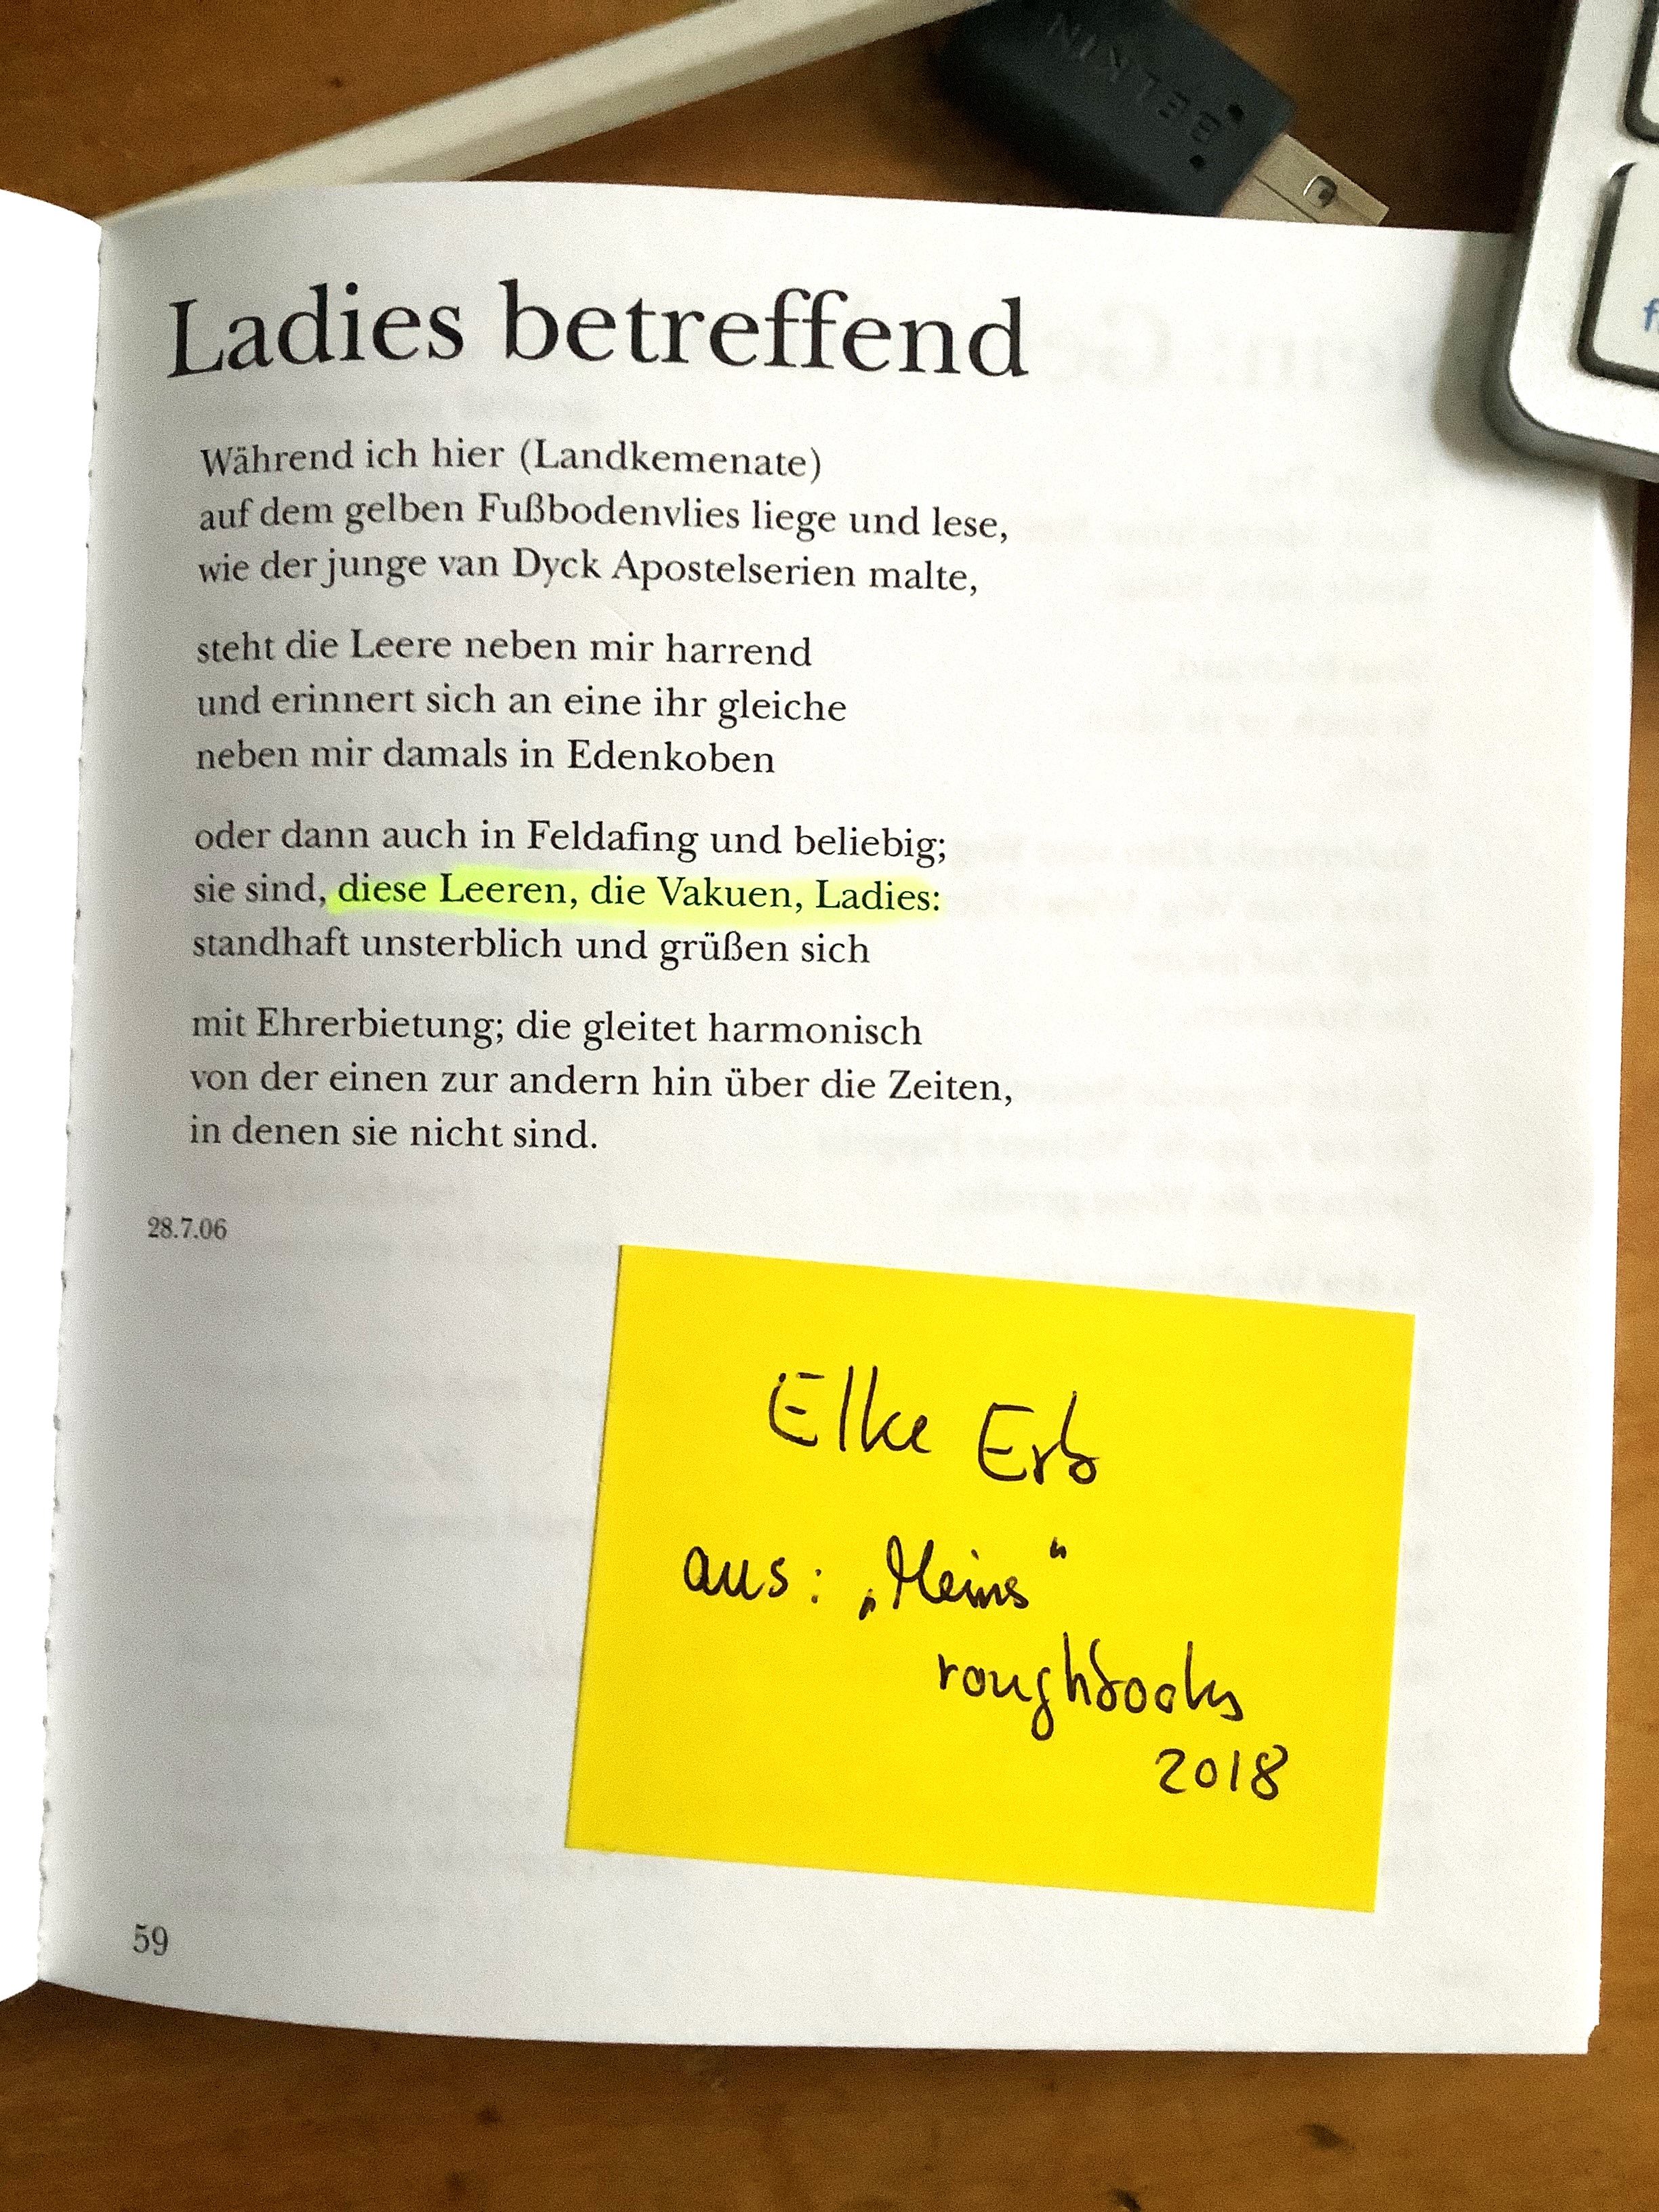 BELKIN
Ladies betreffend
Während ich hier (Landkemenate)
auf dem gelben Fußbodenvlies liege und lese,
wie der junge van Dyck Apostelserien malte,
steht die Leere neben mir harrend
und erinnert sich an eine ihr gleiche
neben mir damals in Edenkoben
oder dann auch in Feldafing und beliebig;
sie sind, diese Leeren, die Vakuen, Ladies:
standhaft unsterblich und grüßen sich
mit Ehrerbietung; die gleitet harmonisch
von der einen zur andern hin über die Zeiten,
in denen sie nicht sind.
28.7.06
Elke Erb
aus: „Meins“
roughbooks
2018
59